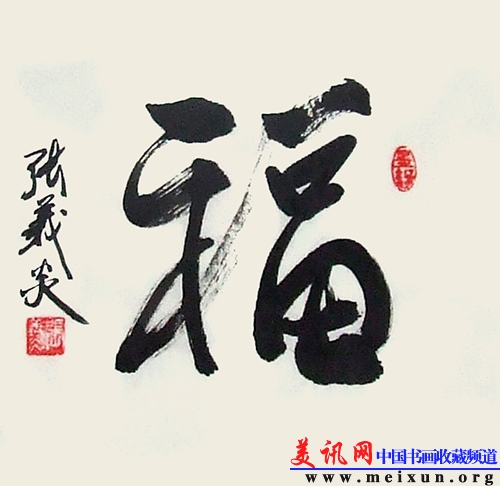 福
张义炎
美讯网 中国书画收藏频道
www.meixun.org